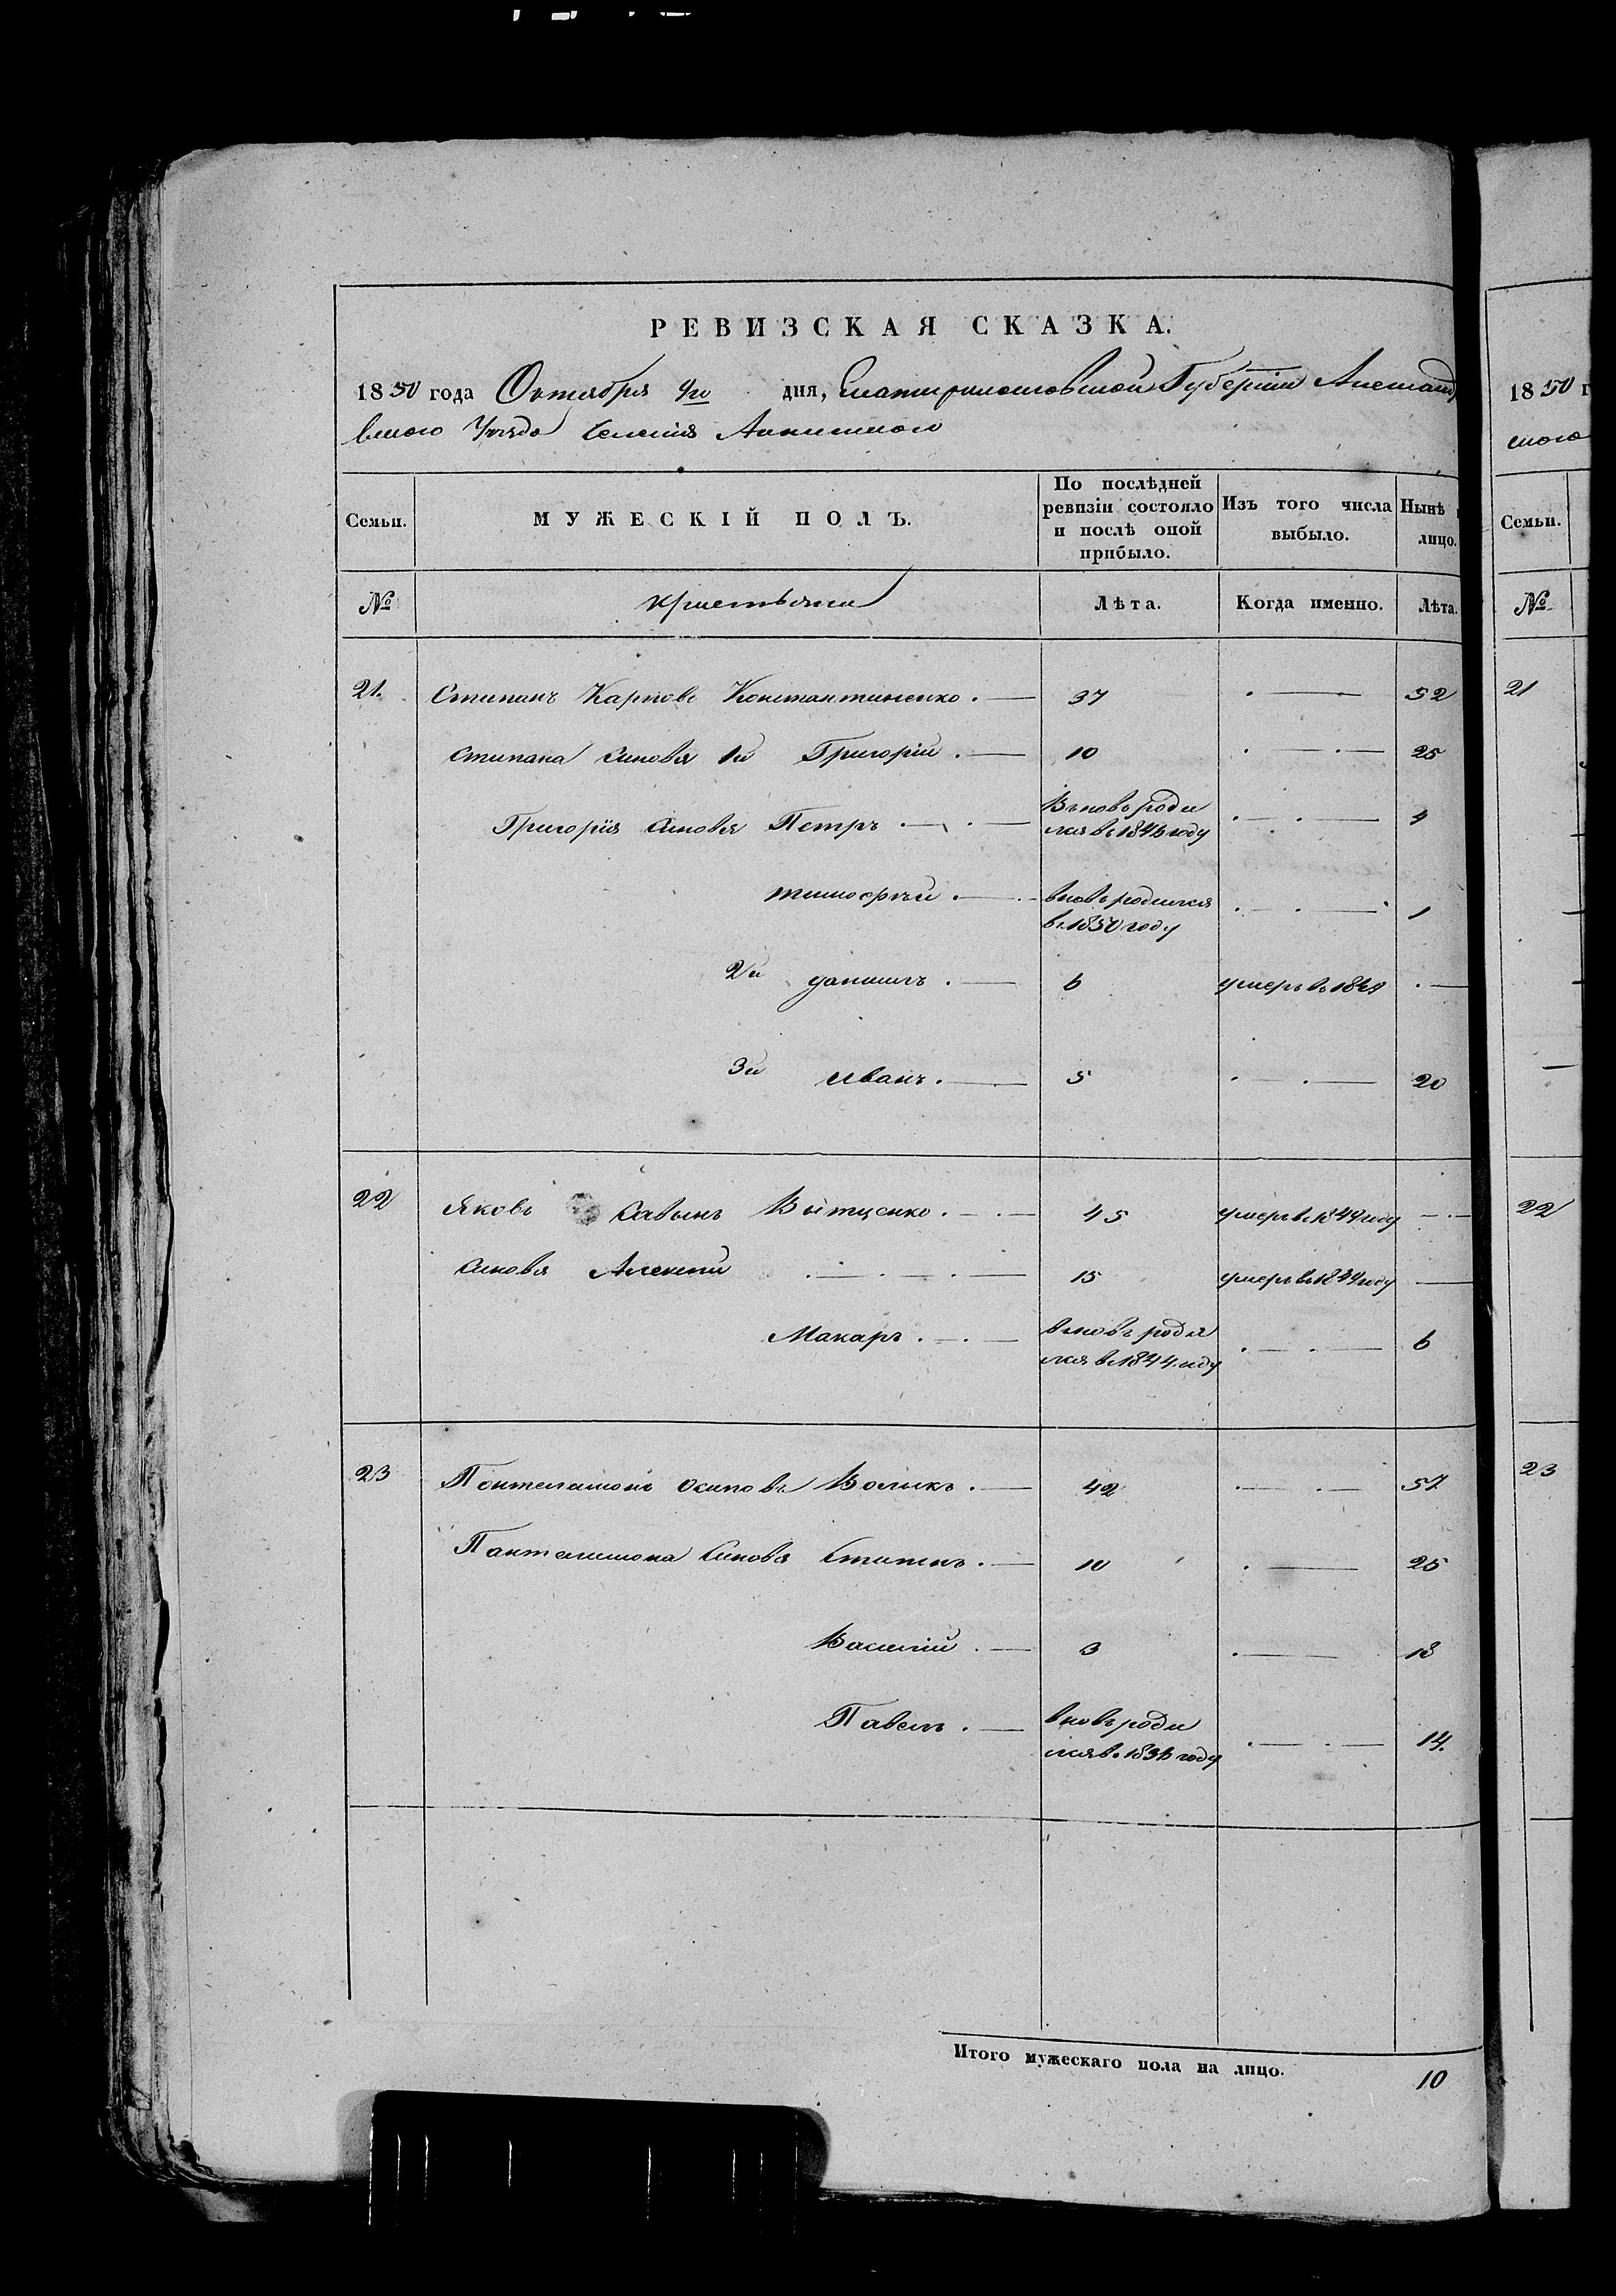 РЕВИЗСКАЯ СКАЗКА.
1850 года Октября дня, Екатеринославской Губерніи Александ
вского Уезда Селенія
Семьи. МУЖЕСКІЙ ПОЛЪ. По послѣдней ревизіи состояло и послѣ оной прибыло. Изъ того числа выбыло. Нынѣ лицо.
№ Крестьяни Лѣта. Когда именно. Лѣта.
21. Степанъ Карповъ Константиненко. 37 52
Степана Синовя 1й Григорій. 10 25
Григорія Синовя Петръ Вновь роди
лся въ 1846 году 4
тимофѣй. вновь родился
въ 1850 году 1
2й данилъ. 6 умеръ въ 18
3й Иванъ. 5 20
22 Яковъ Савинъ 45 умеръ въ 1844 году
Синовя Алексій 15 умеръ въ 1844 году
Макаръ. вновь роди
лся въ 1844 году 6
23 Пантелимонъ Осиповъ Воликъ. 42 57
Пантелимона Синовя Степанъ. 10 25
Василій. 3 18
Павелъ. вновь роди
лся въ 1836 году 14.
Итого мужескаго пола на лицо. 10
1850 г
ского
Семьи.
№
21
22
23